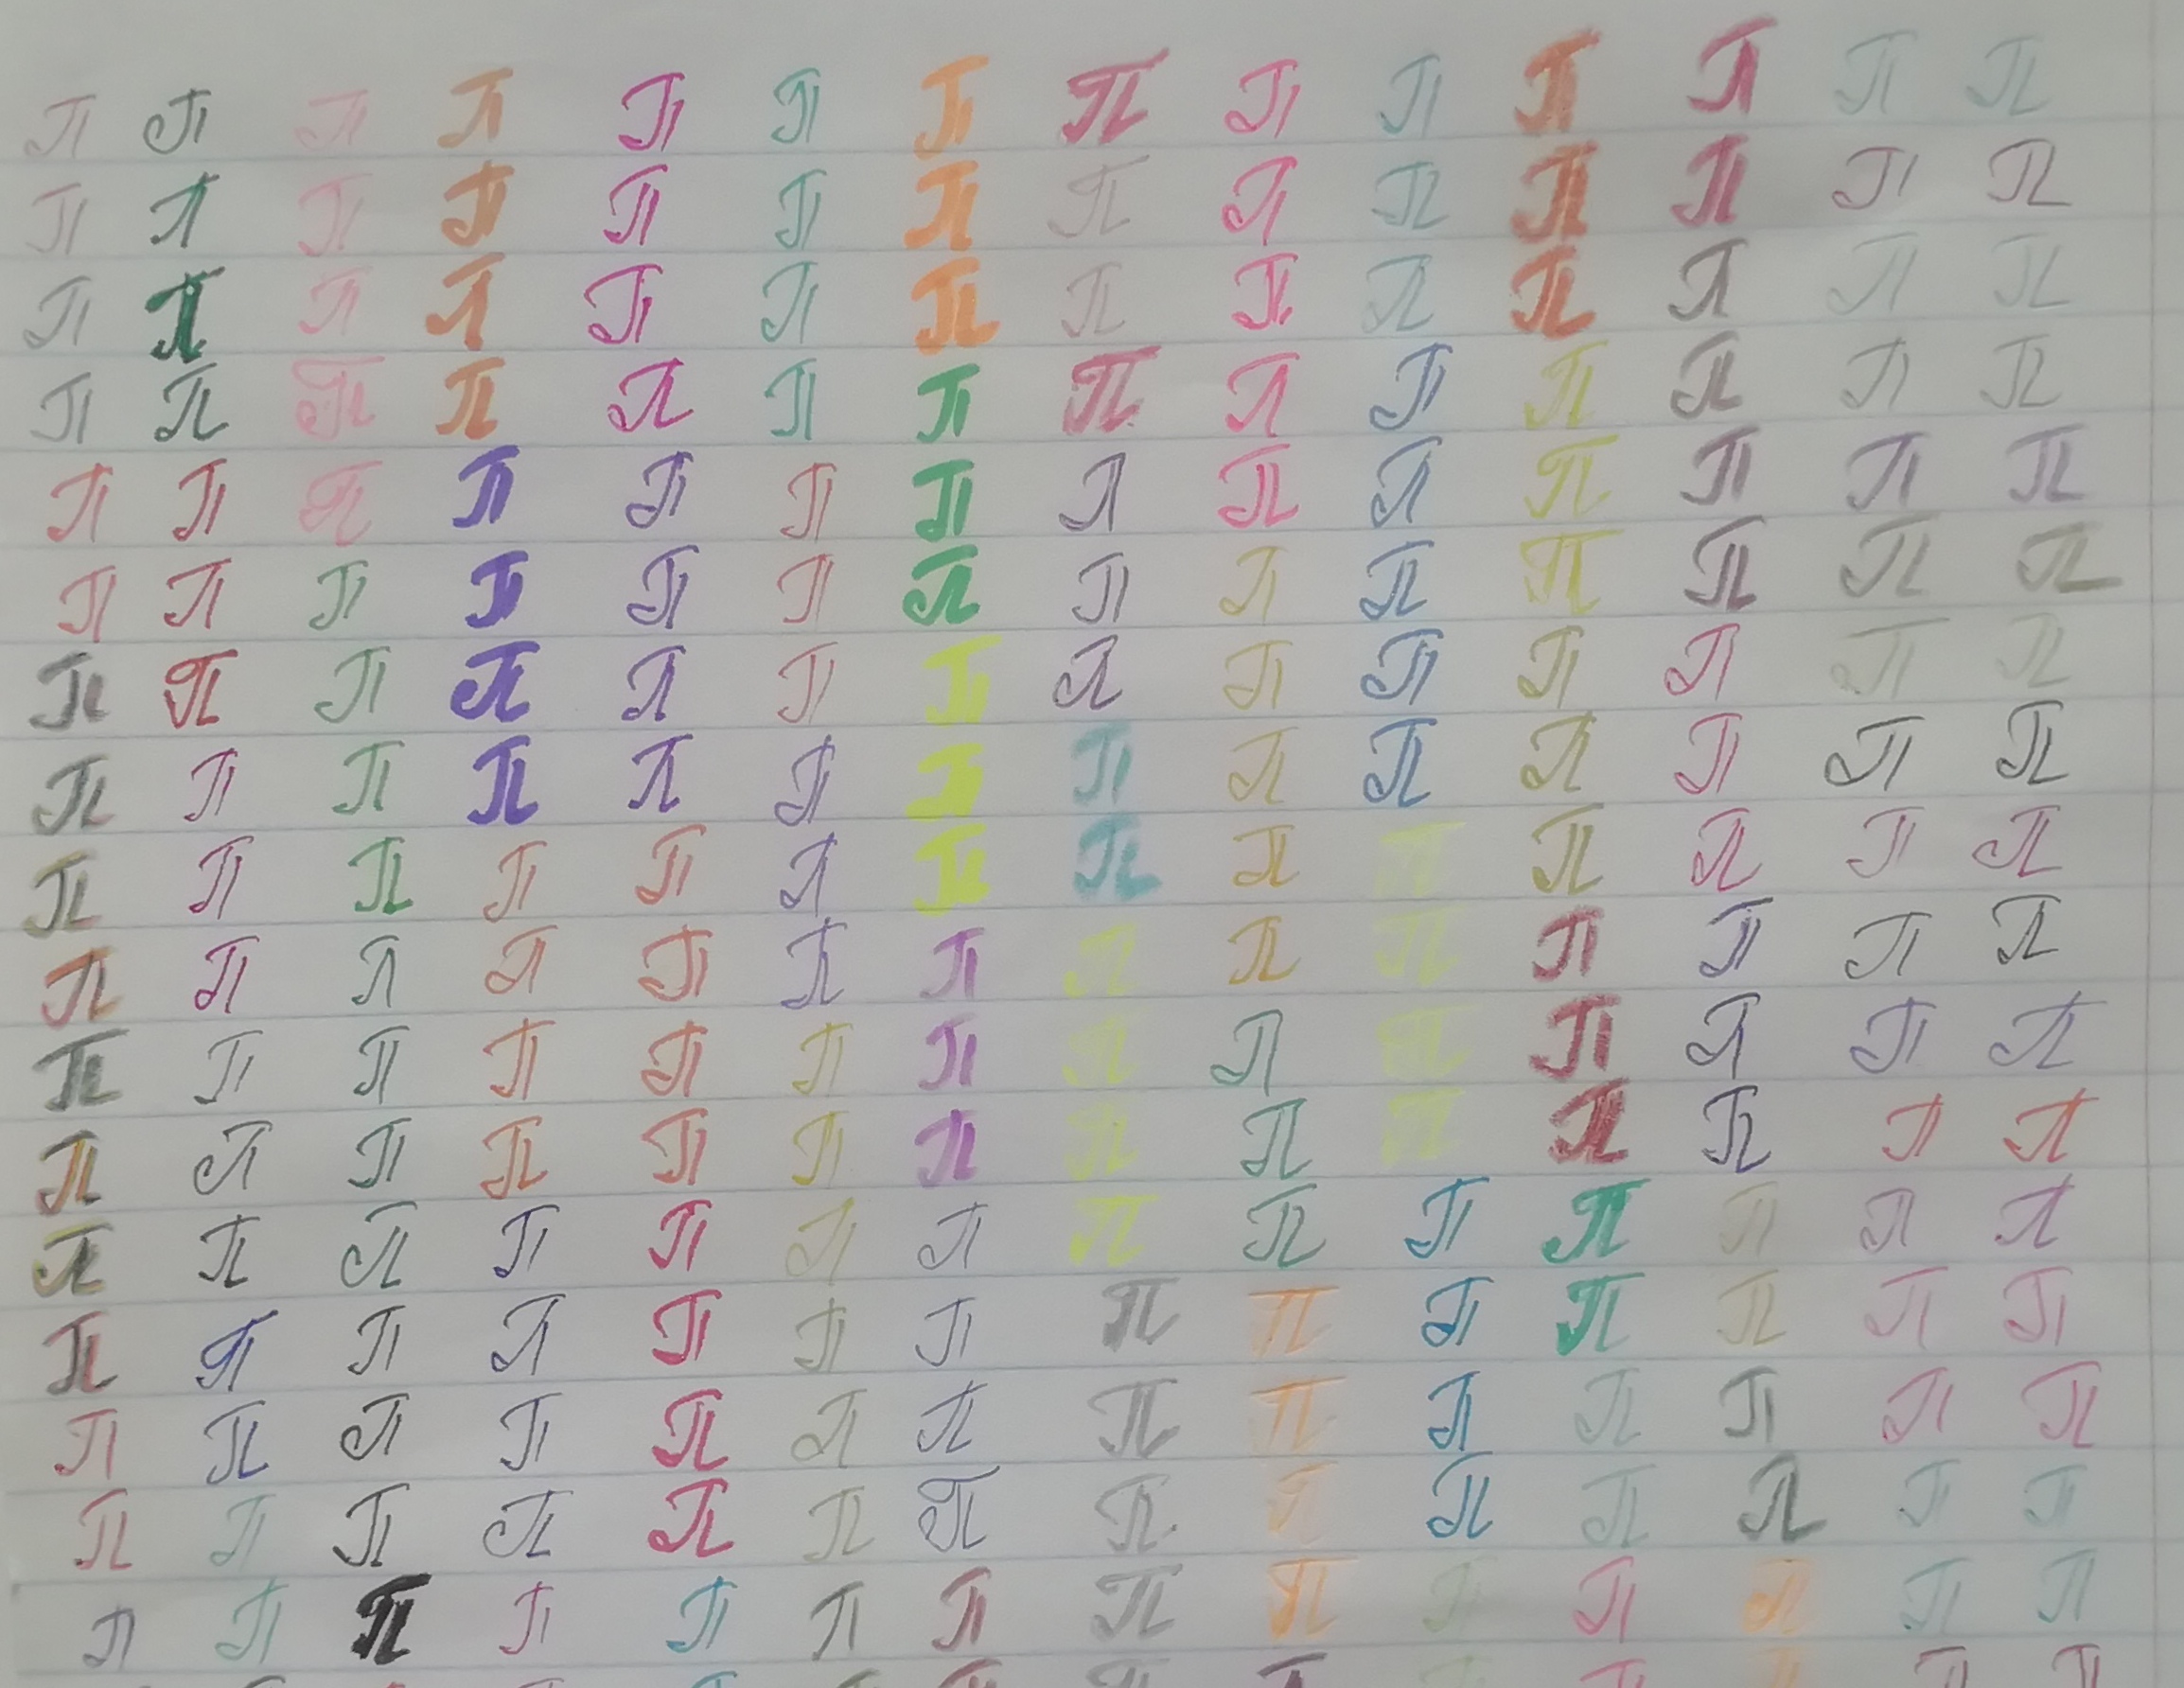 π π π π π π π π π π π π π π
π π π π π π π π π π π π π π
π π π π π π π π π π π π π π
π π π π π π π π π π π π π π
π π π π π π π π π π π π π π
π π π π π π π π π π π π π π
π π π π π π π π π π π π π π
π π π π π π π π π π π π π π
π π π π π π π π π π π π π π
π π π π π π π π π π π π π π
π π π π π π π π π π π π π π
π π π π π π π π π π π π π π
π π π π π π π π π π π π π π
π π π π π π π π π π π π π π
π π π π π π π π π π π π π π
π π π π π π π π π π π π π π
π π π π π π π π π π π π π π